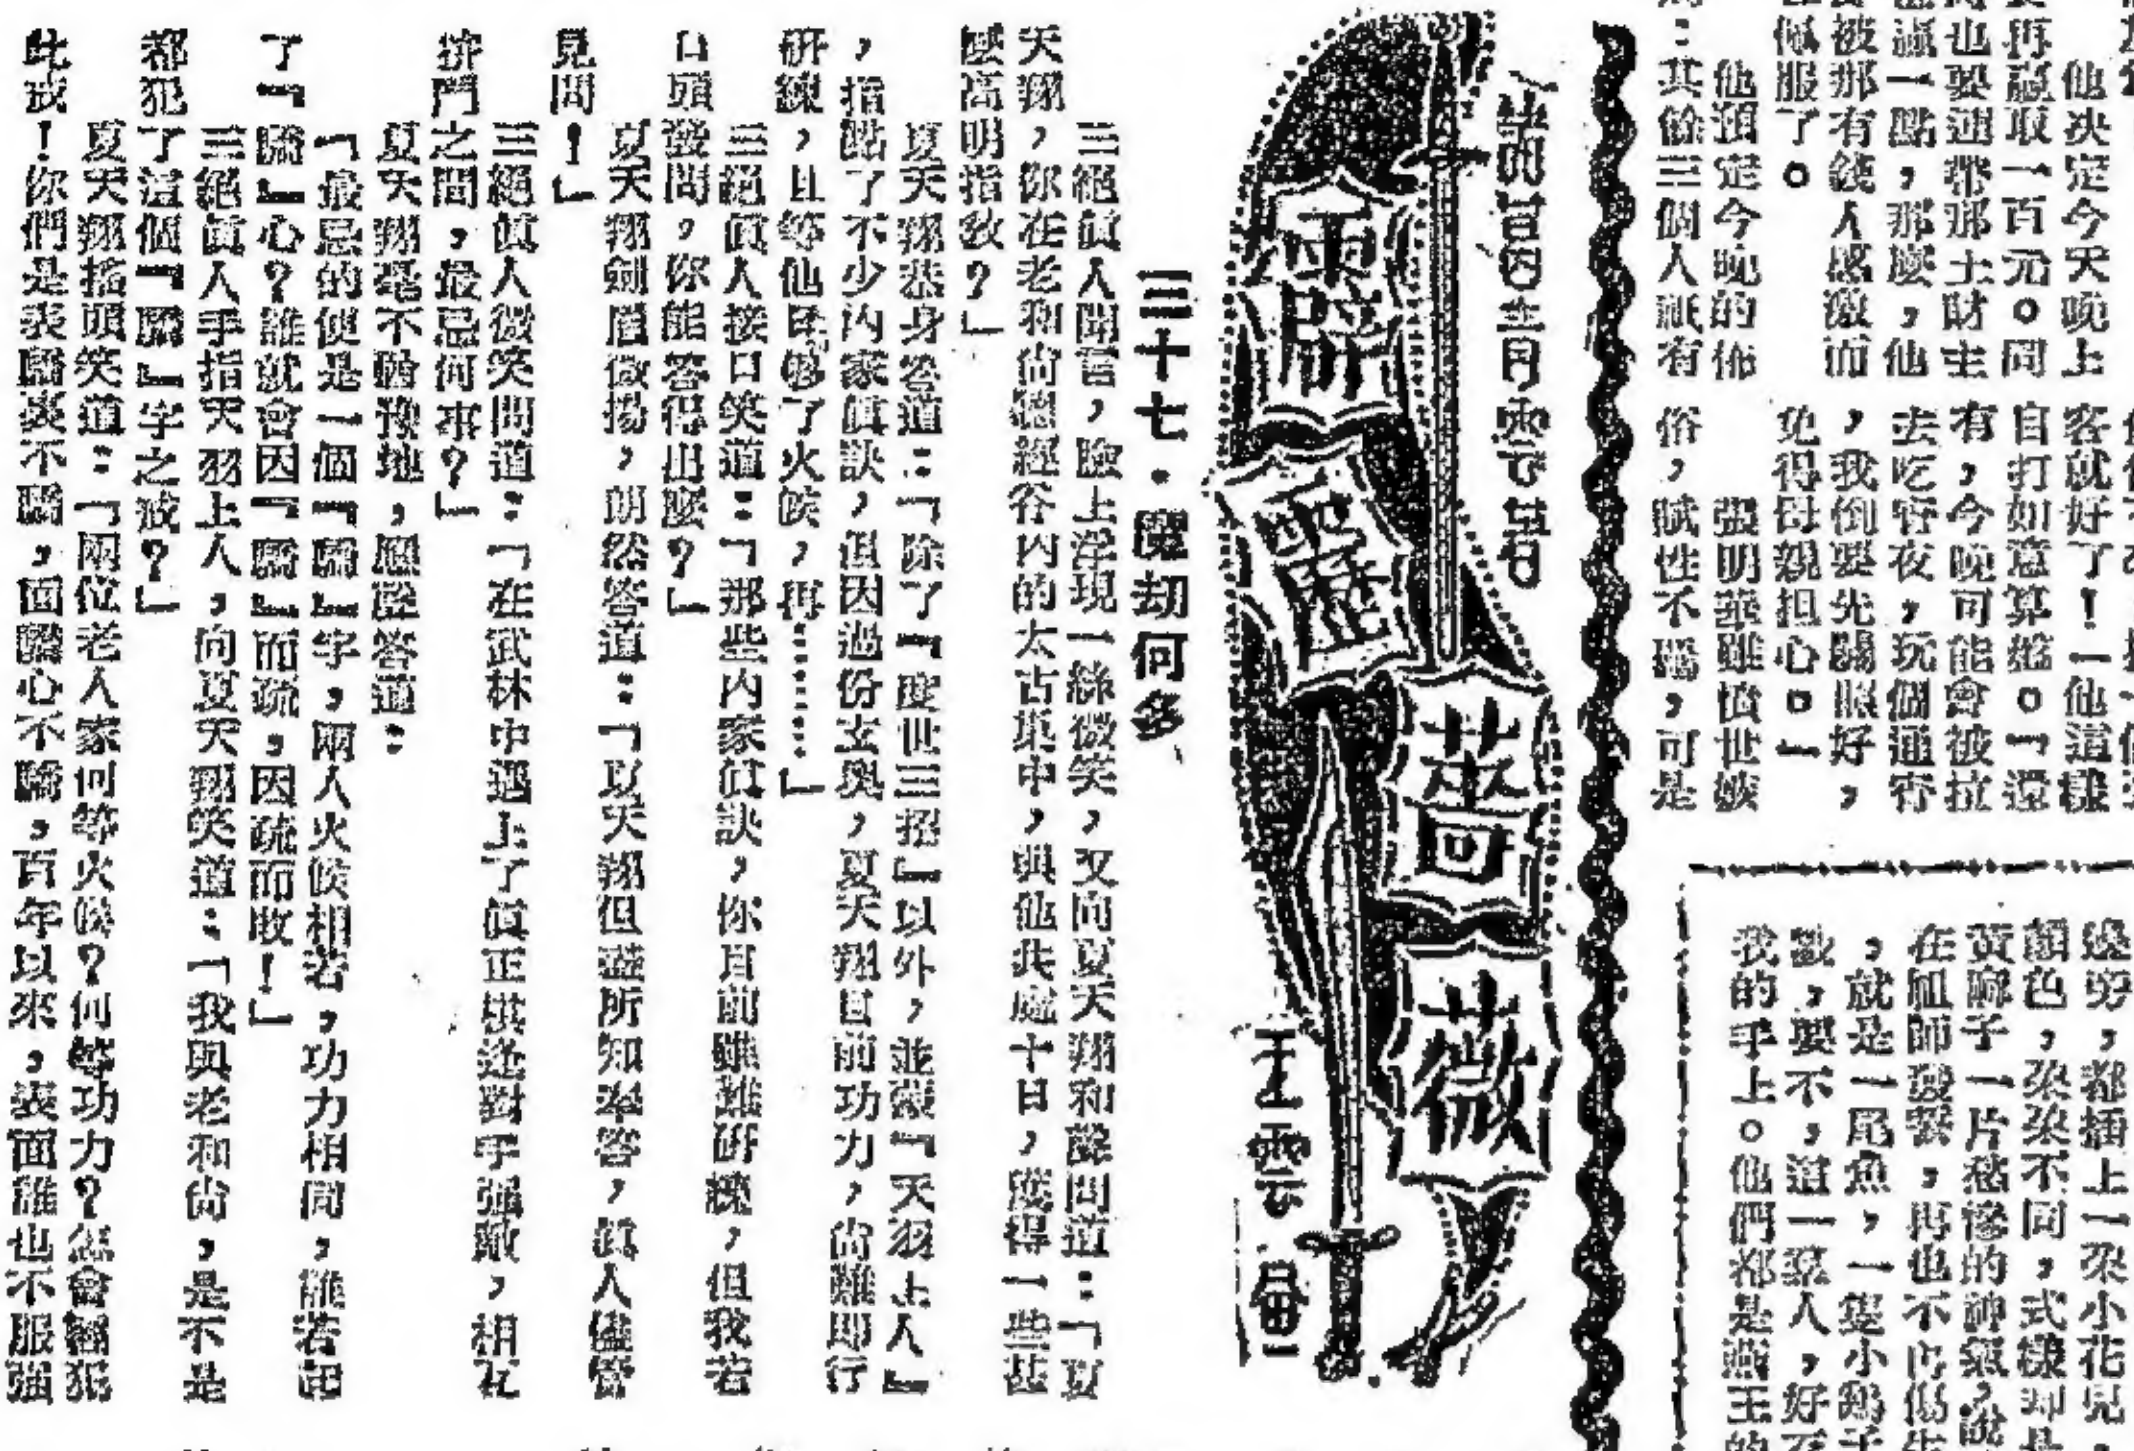 他決定今天晚上
要再贏取一百元。同
時也要迎帶那土財主
贏一點，那麼，他
被那有錢人感激而
佩服了。
他預定今晚的佈
：其餘三個人祇有
客就好了！一他這樣
自打如意算盤。「還
有，今晚可能會被拉
去吃宵夜，玩個通宵
，我倒要先關照好，
免得母親担心。」
張明華雖憤世嫉
俗，賦性不羈，可是
邊旁，都插上一朵小花兒
顏色，朵朵不同，式樣却是
黃癬子一片愁慘的神氣，說
在祖師發誓，再也不肯傷生
，就是一尾魚，一隻小鷄子
戲，要不，這一羣人，好歹
我的手上。他們都是燕王的
霹靂薔薇
三十七·魔劫何多
三絕眞人聞言，臉上浮現一絲微笑，又向夏天翔和聲問道：「夏
天翔，你在老和尚緫經谷內的太古墓中，與他共處十日，獲得一些甚
麼高明指教？」
夏天翔恭身答道：「除了『度世三招』以外，並蒙『天羽上人』
，指點了不少內家眞訣，但因過份玄奧，夏天翔目前功力，尚難即行
研練，且等他日够了火候，再……」
三絕眞人接口笑道：「那些內家眞訣，你目前雖難研練，但我若
口頭發問，你能答得出麼？」
夏天翔劍眉微揚，朗然答道：「夏天翔但盡所知奉答，眞人儘管
見問！」
三絕眞人微笑問道：「在武林中遇上了眞正棋逢對手强敵，相互
拚鬥之間，最忌何事？」
夏天翔毫不猶豫地，應聲答道：
「最忌的便是一個『驕』字，兩人火候相若，功力相同，誰若起
了『驕』心？誰就會因『驕』而疏，因疏而敗！」
三絕眞人手指天羽上人，向夏天翔笑道：「我與老和尚，是不是
都犯了這個『驕』字之戒？」
夏天翔搖頭笑道：「兩位老人家何等火候？何等功力？怎會輕犯
此戒！你們是表驕裏不驕，面驕心不驕，百年以來，表面誰也不服强